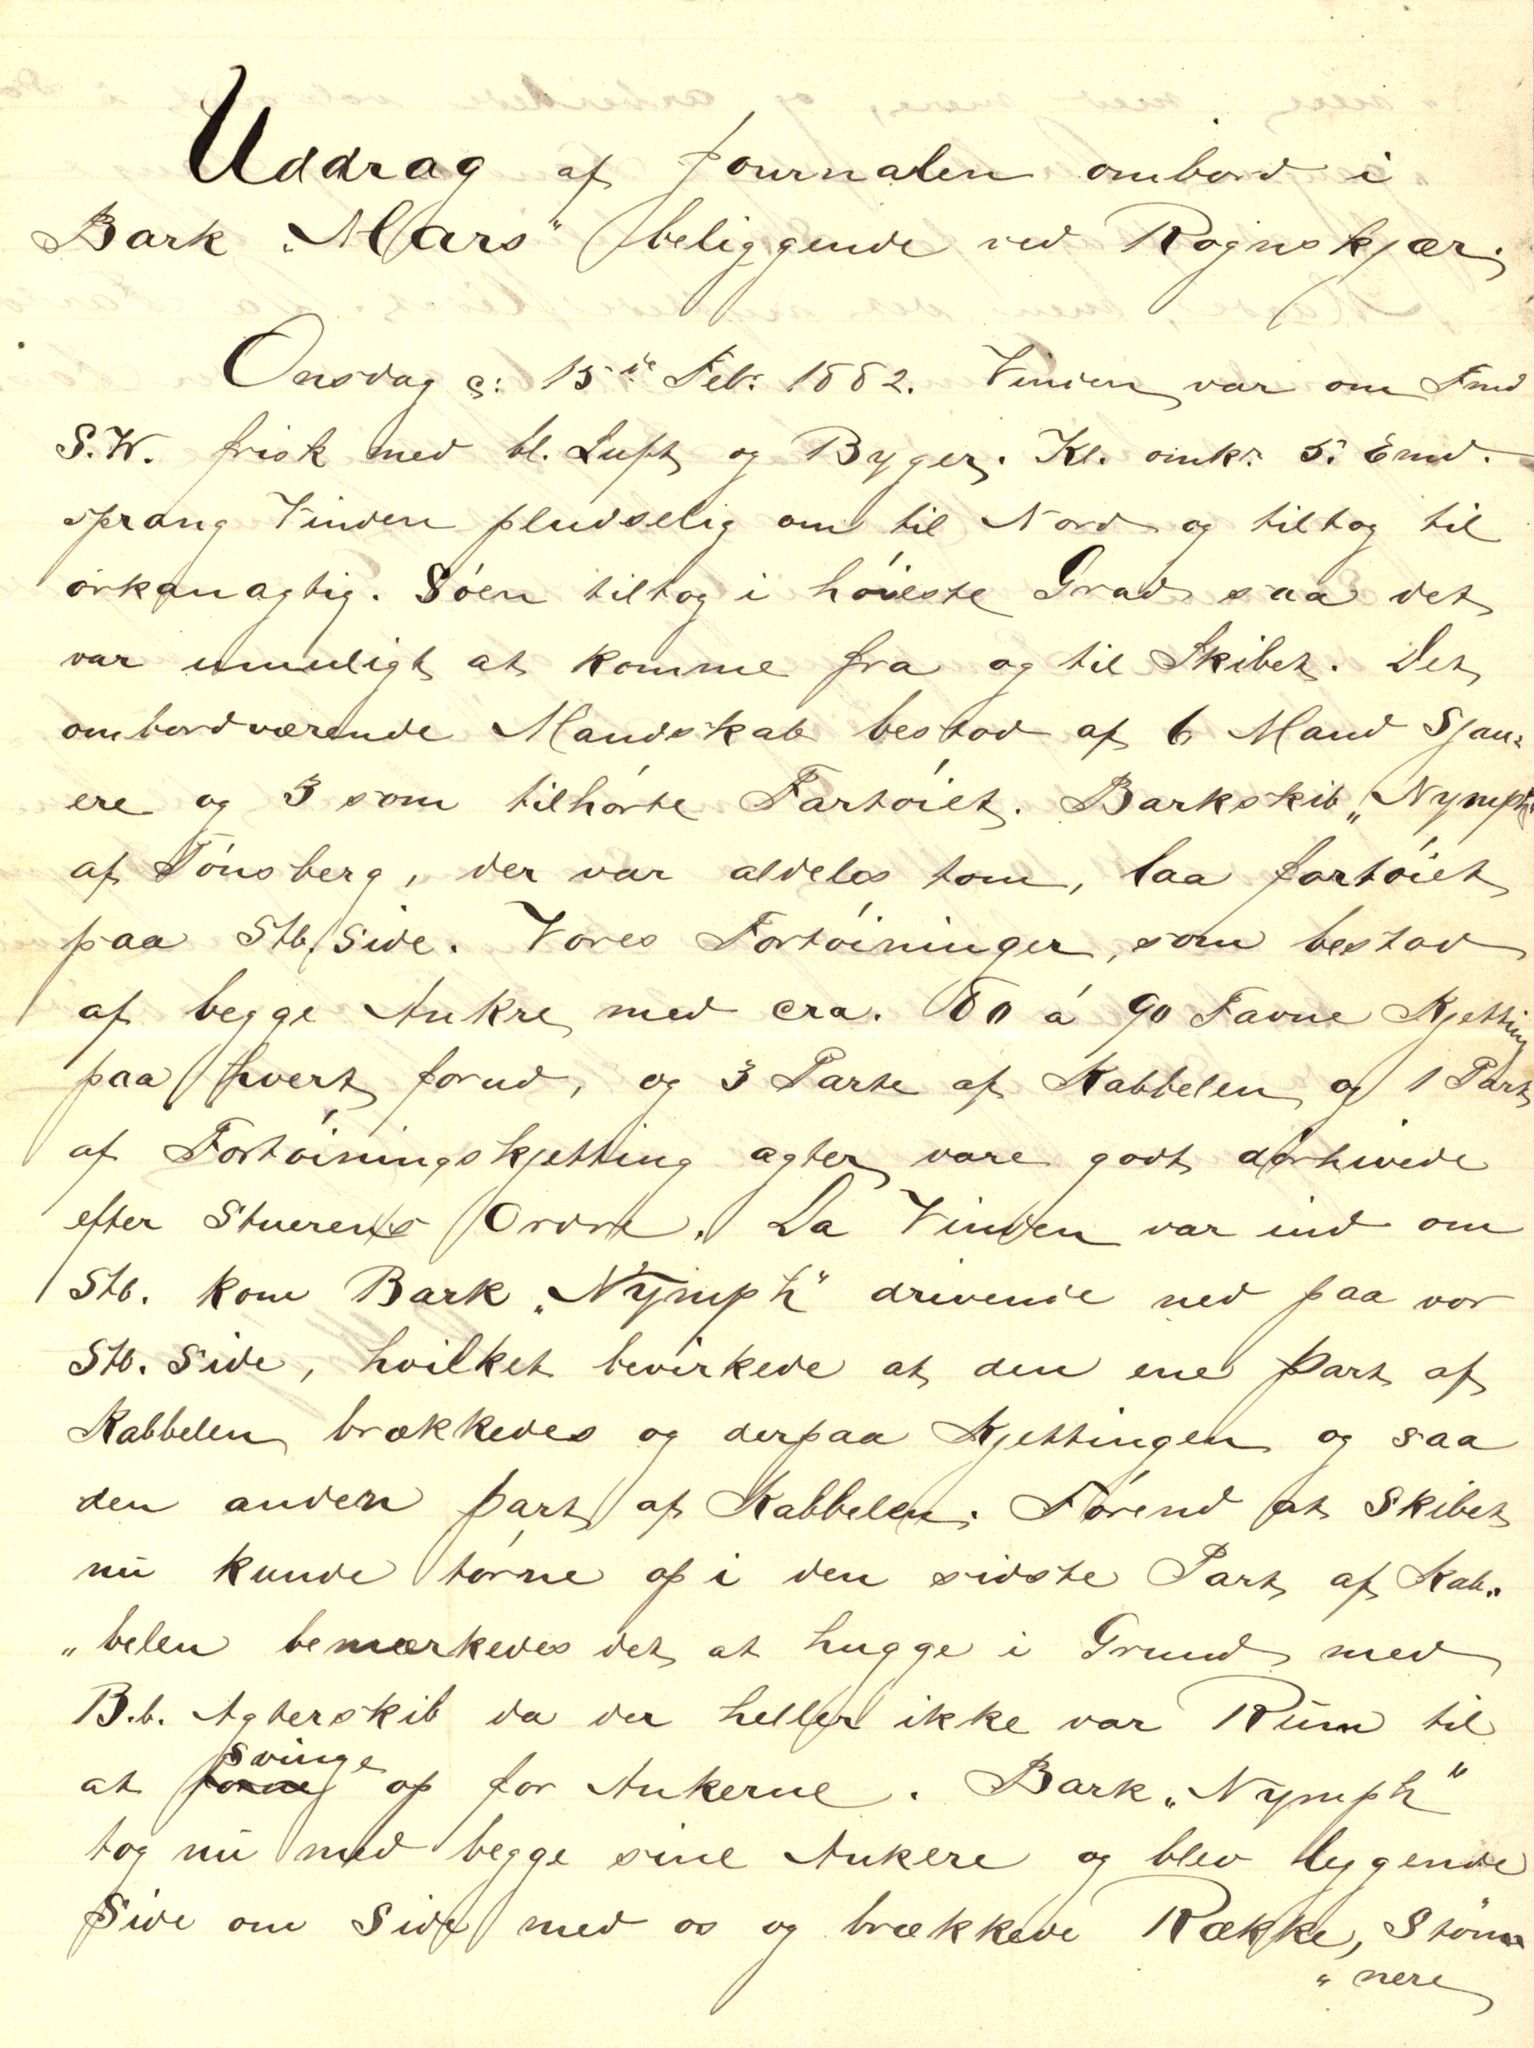 Uddrag af Journalen ombord i
Bark „Mars" beliggende ved Rognskjær.
Onsdag d: 15de Febr. 1882. Vinden var om Fmd
S.W. frisk med bl. Luft og Byger. Kl. omkr. 5. Emd.
sprang Vinden pludselig om til Nord og tiltog til
orkanagtig. Söen tiltog i höieste Grad saa det
var umuligt at komme fra og til Skibet. Det
ombordværende Mandskab bestod af 6 Mand Sjau-
ere og 3 som tilhörte Fartöiet. Barkskib „Nymph"
af Tönsberg, der var aldeles tom, laa fortöiet
paa Stb. Side. Vores Fortöininger, som bestod
af begge Ankre med cra. 80 á 90 Favne Kjetting
paa hvert forud, og 3 Parte af Kabbelen og 1 Part
af Fortöiningskjetting agter vare godt dörhivede
efter Stuerens Ordre. Da Vinden var ind om
Stb. kom Bark „Nymph" drivende ned paa vor
Stb. Side, hvilket bevirkede at den ene Part af
Kabbelen brækkedes og derpaa Kjettingen og saa
den anden part af Kabbelen. Förend at Skibet
nu kunde törne op i den sidste Part af Kab„
„belen bemærkedes det at hugge i Grund med
B.b. Agterskib da der heller ikke var Rum til
at svinge op for Ankerne. Bark „Nymph"
tog nu med begge sine Ankere og blev liggende
Side om Side med os og brækkede Række, Stön„
„nere